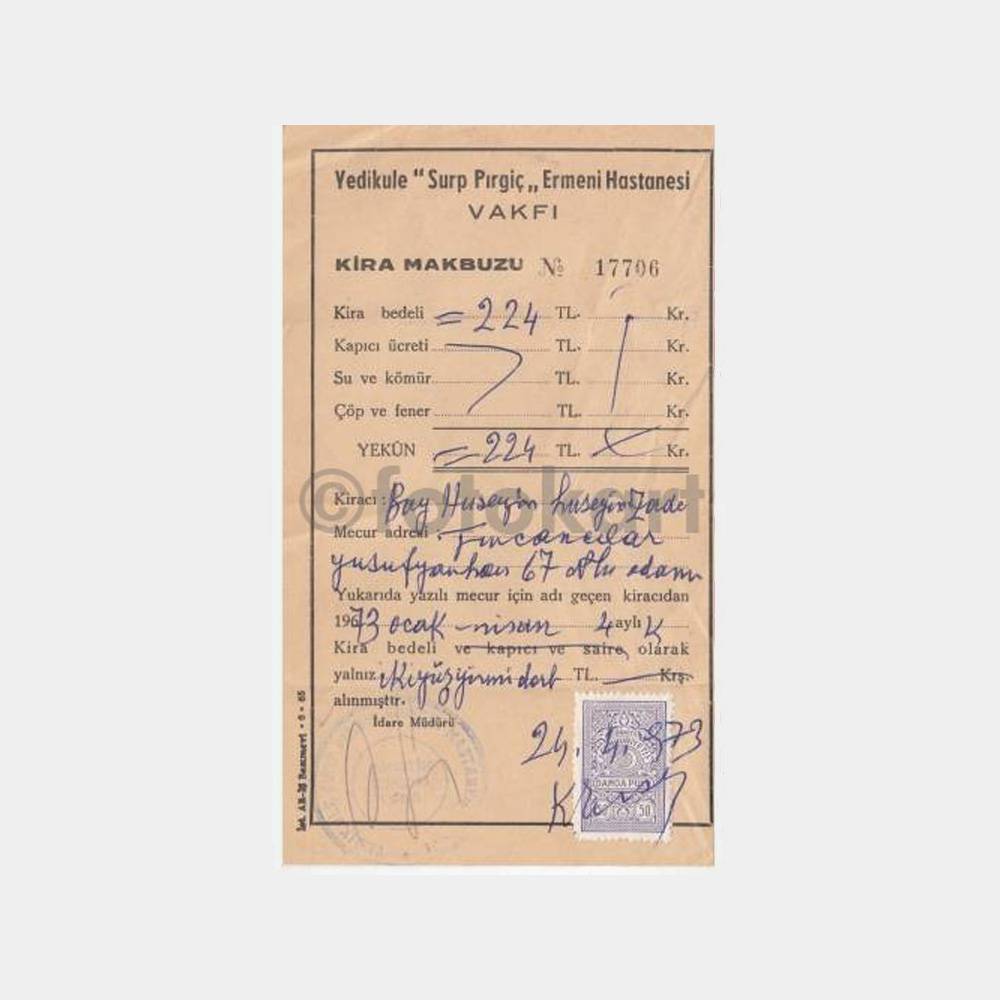 Yedikule “Surp Pırgiç„ Ermeni Hastanesi
VAKFI
KİRA MAKBUZU № 17706
Kira bedeli = 224 TL. Kr.
Kapıcı ücreti TL. Kr.
Su ve kömür TL. Kr.
Çöp ve fener TL. Kr.
YEKÛN = 224 TL. Kr.
©fotokart
Kiracı : Bay Huseyin huseyinzade
Mecur adresi : Fincancılar
yusufyan han 67 Nlu odanın
Yukarıda yazılı mecur için adı geçen kiracıdan
19673 ocak - nisan 4 aylık
Kira bedeli ve kapıcı ve saire, olarak
yalnız ikiyüzyirmidört TL. Krş.
alınmıştır.
İdare Müdürü
24.4.973
DAMGA PULU
50